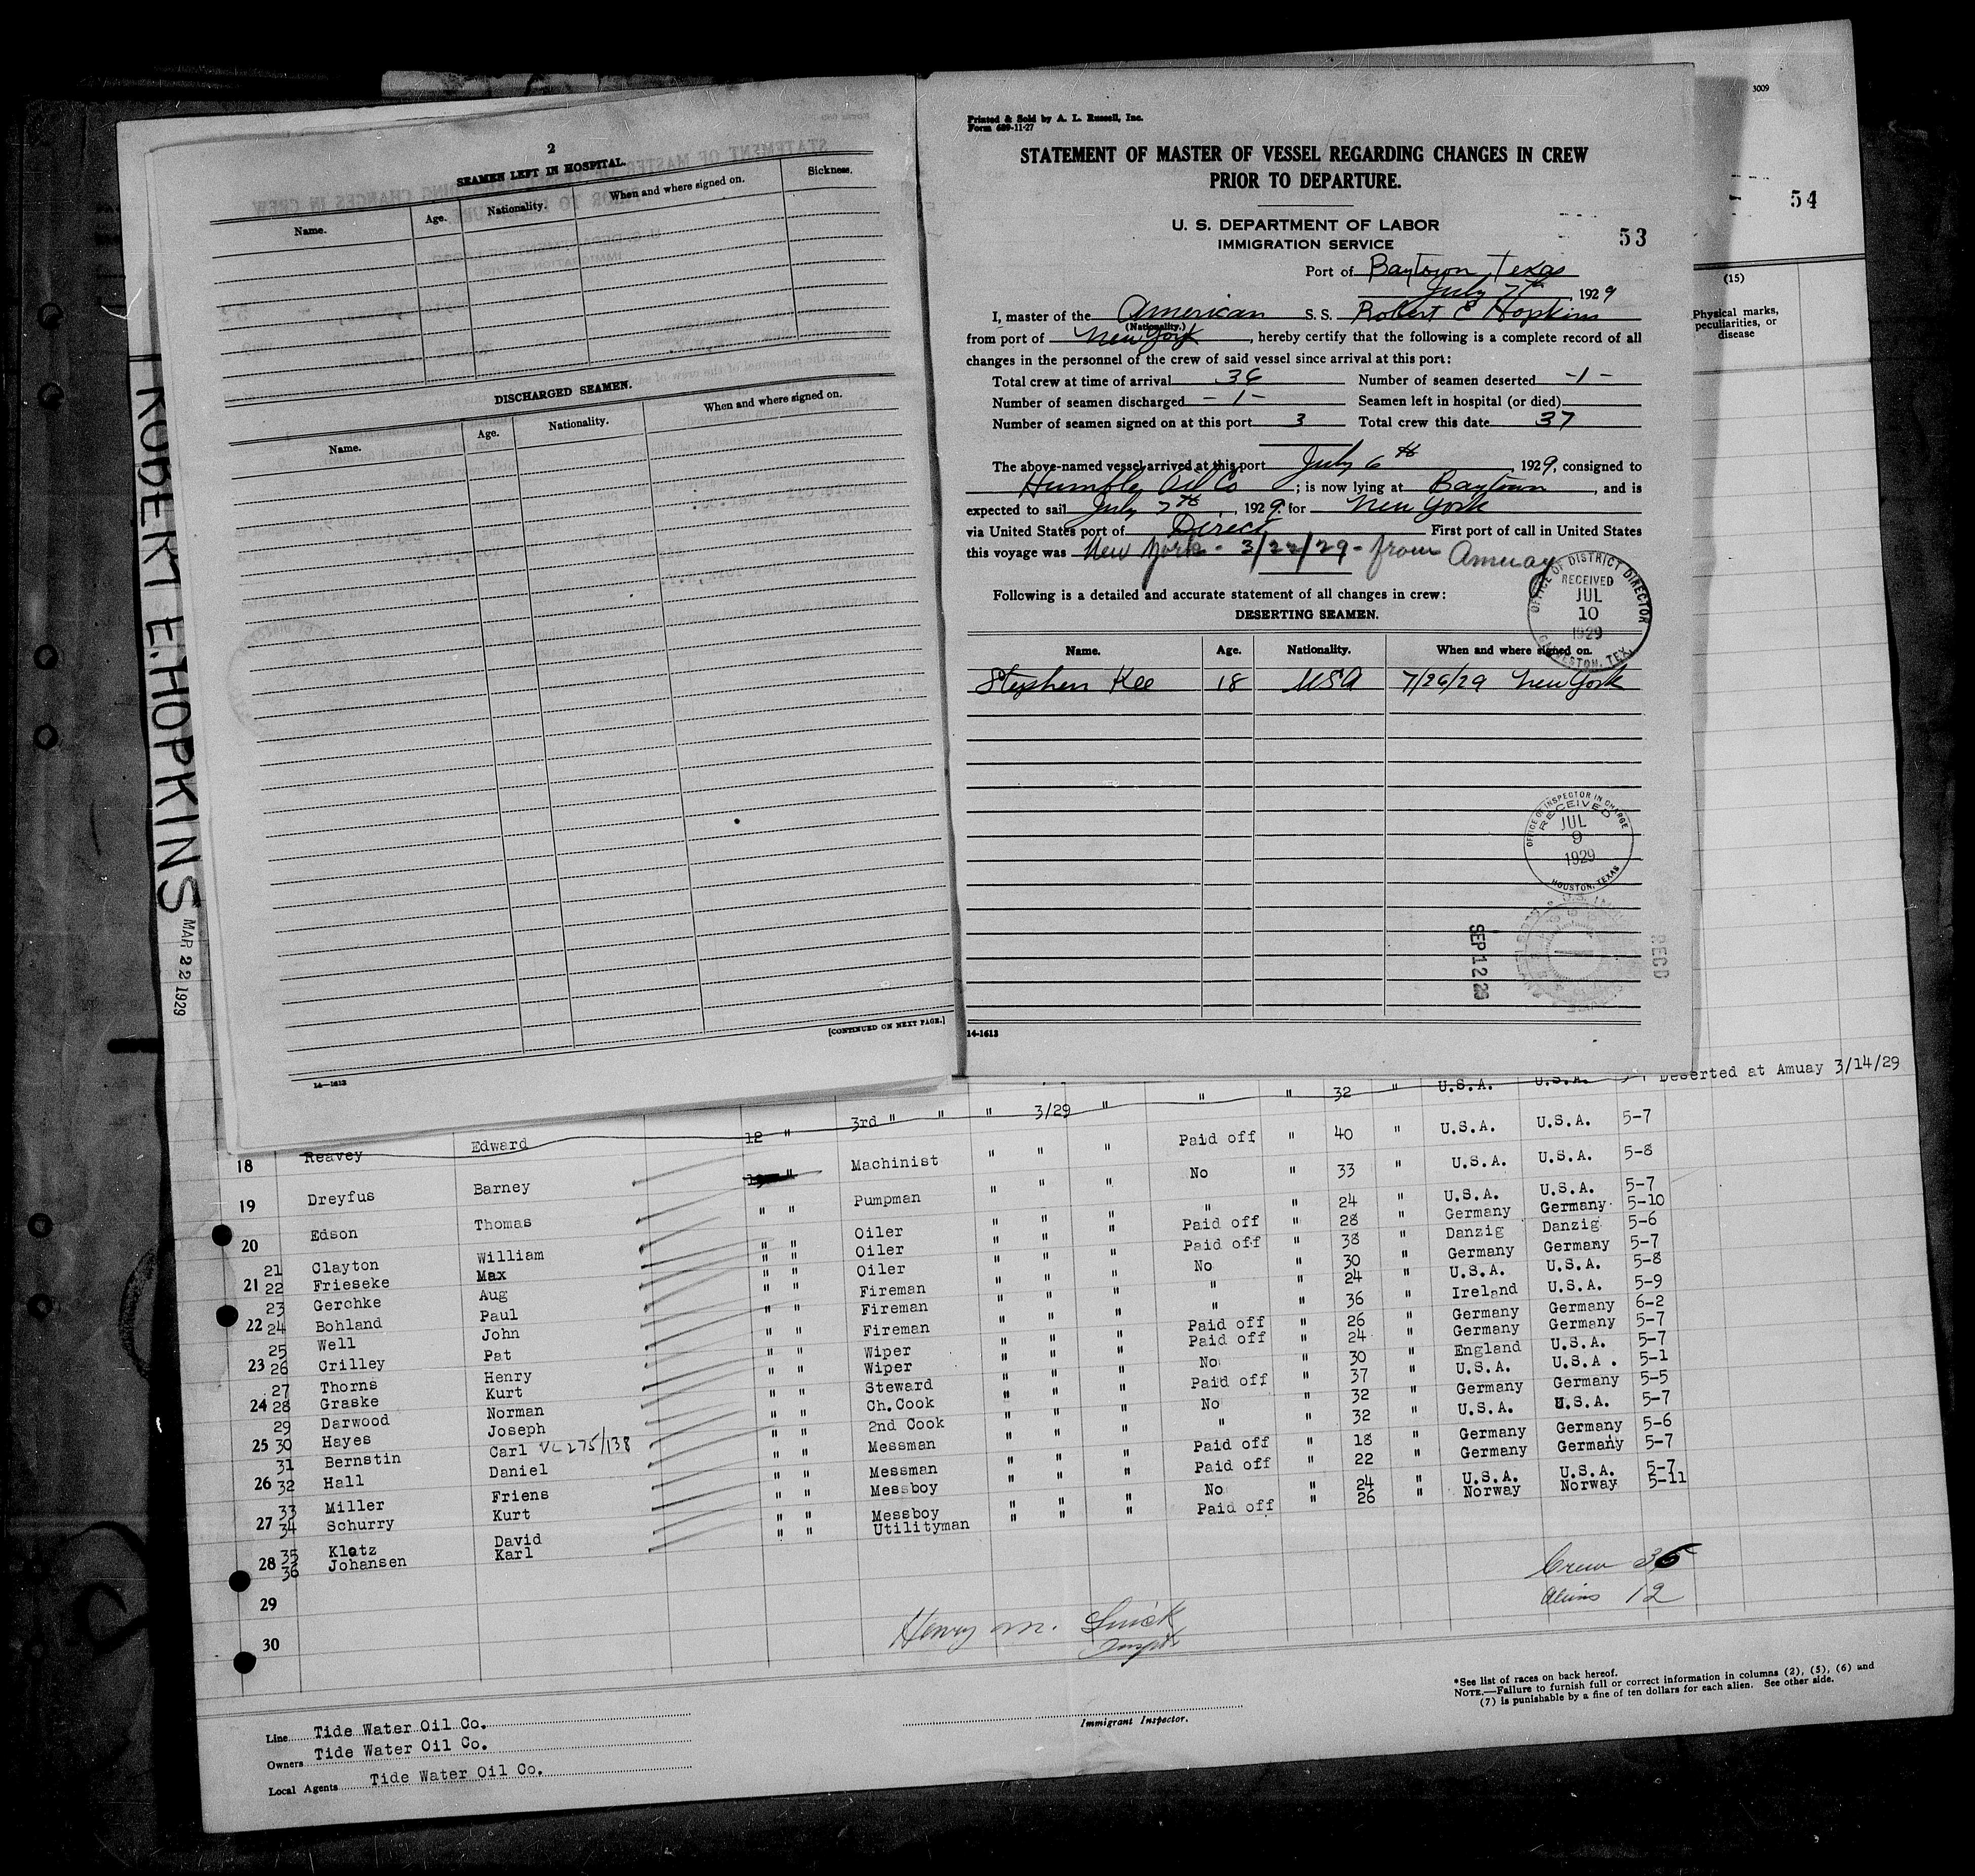 2
SEAMEN LEFT IN HOSPITAL.
Name. Age. Nationality. When and where signed on. Sickness.
DISCHARGED SEAMEN.
Name. Age. Nationality. When and where signed on.
[CONTINUED ON NEXT PAGE.]
14—1613
ROBERT E. HOPKINS
MAR 22 1929
Printed & Sold by A. L. Russell, Inc.
Form 689-11-27
STATEMENT OF MASTER OF VESSEL REGARDING CHANGES IN CREW
PRIOR TO DEPARTURE.
U. S. DEPARTMENT OF LABOR
IMMIGRATION SERVICE
53
Port of Baytown, Texas
July 7th, 1929
I, master of the American S. S. Robert E Hopkins
(Nationality.)
from port of New York, hereby certify that the following is a complete record of all
changes in the personnel of the crew of said vessel since arrival at this port:
Total crew at time of arrival 36 Number of seamen deserted -1-
Number of seamen discharged -1- Seamen left in hospital (or died)
Number of seamen signed on at this port 3 Total crew this date 37
The above-named vessel arrived at this port July 6th, 1929, consigned to
Humble Oil Co; is now lying at Baytown, and is
expected to sail July 7th, 1929 for New York
via United States port of Direct First port of call in United States
this voyage was New York - 3/22/29 - from Amuay
Following is a detailed and accurate statement of all changes in crew:
DESERTING SEAMEN.
Name. Age. Nationality. When and where signed on.
Stephen Kee 18 USA 7/26/29 New York
OFFICE OF DISTRICT DIRECTOR
RECEIVED
JUL
10
1929
GALVESTON, TEX.
OFFICE OF INSPECTOR IN CHARGE
RECEIVED
JUL
9
1929
HOUSTON, TEXAS
SEP 12 29
RECD
14-1613
3009
54
(15)
Physical marks,
peculiarities, or
disease
3rd " " " 3/29 " " " 32 " U.S.A. U.S.A. Deserted at Amuay 3/14/29
18 Reavey Edward 12 " Machinist " " " Paid off " 40 " U.S.A. U.S.A. 5-7
19 Dreyfus Barney " Pumpman " " " No " 33 " U.S.A. U.S.A. 5-8
20 Edson Thomas " " Oiler " " " " " 24 " U.S.A. U.S.A. 5-7
21 Clayton William " " Oiler " " " Paid off " 28 " Germany Germany 5-10
21 22 Frieseke Max " " Oiler " " " Paid off " 38 " Danzig Danzig 5-6
23 Gerchke Aug " " Fireman " " " No " 30 " Germany Germany 5-7
22 24 Bohland Paul " " Fireman " " " " " 24 " U.S.A. U.S.A. 5-8
25 Well John " " Fireman " " " " " 36 " Ireland U.S.A. 5-9
23 26 Crilley Pat " " Wiper " " " Paid off " 26 " Germany Germany 6-2
27 Thorns Henry " " Wiper " " " Paid off " 24 " Germany Germany 5-7
24 28 Graske Kurt " " Steward " " " No " 30 " England U.S.A. 5-7
29 Darwood Norman " " Ch.Cook " " " Paid off " 37 " U.S.A. U.S.A. 5-1
25 30 Hayes Joseph " " 2nd Cook " " " No " 32 " Germany Germany 5-5
31 Bernstin Carl VL 275/138 " " Messman " " " " " 32 " U.S.A. U.S.A. 5-7
26 32 Hall Daniel " " Messman " " " Paid off " 18 " Germany Germany 5-6
33 Miller Friens " " Messboy " " " Paid off " 22 " Germany Germany 5-7
27 34 Schurry Kurt " " Messboy " " " No " 24 " U.S.A. U.S.A. 5-7
35 Klatz David " " Utilityman " " " Paid off " 26 " Norway Norway 5-11
28 36 Johansen Karl
29
30
Crew 36
Aliens 12
Henry M.
Immigrant Inspector.
*See list of races on back hereof.
NOTE.—Failure to furnish full or correct information in columns (2), (5), (6) and
(7) is punishable by a fine of ten dollars for each alien. See other side.
Line Tide Water Oil Co.
Owners Tide Water Oil Co.
Local Agents Tide Water Oil Co.